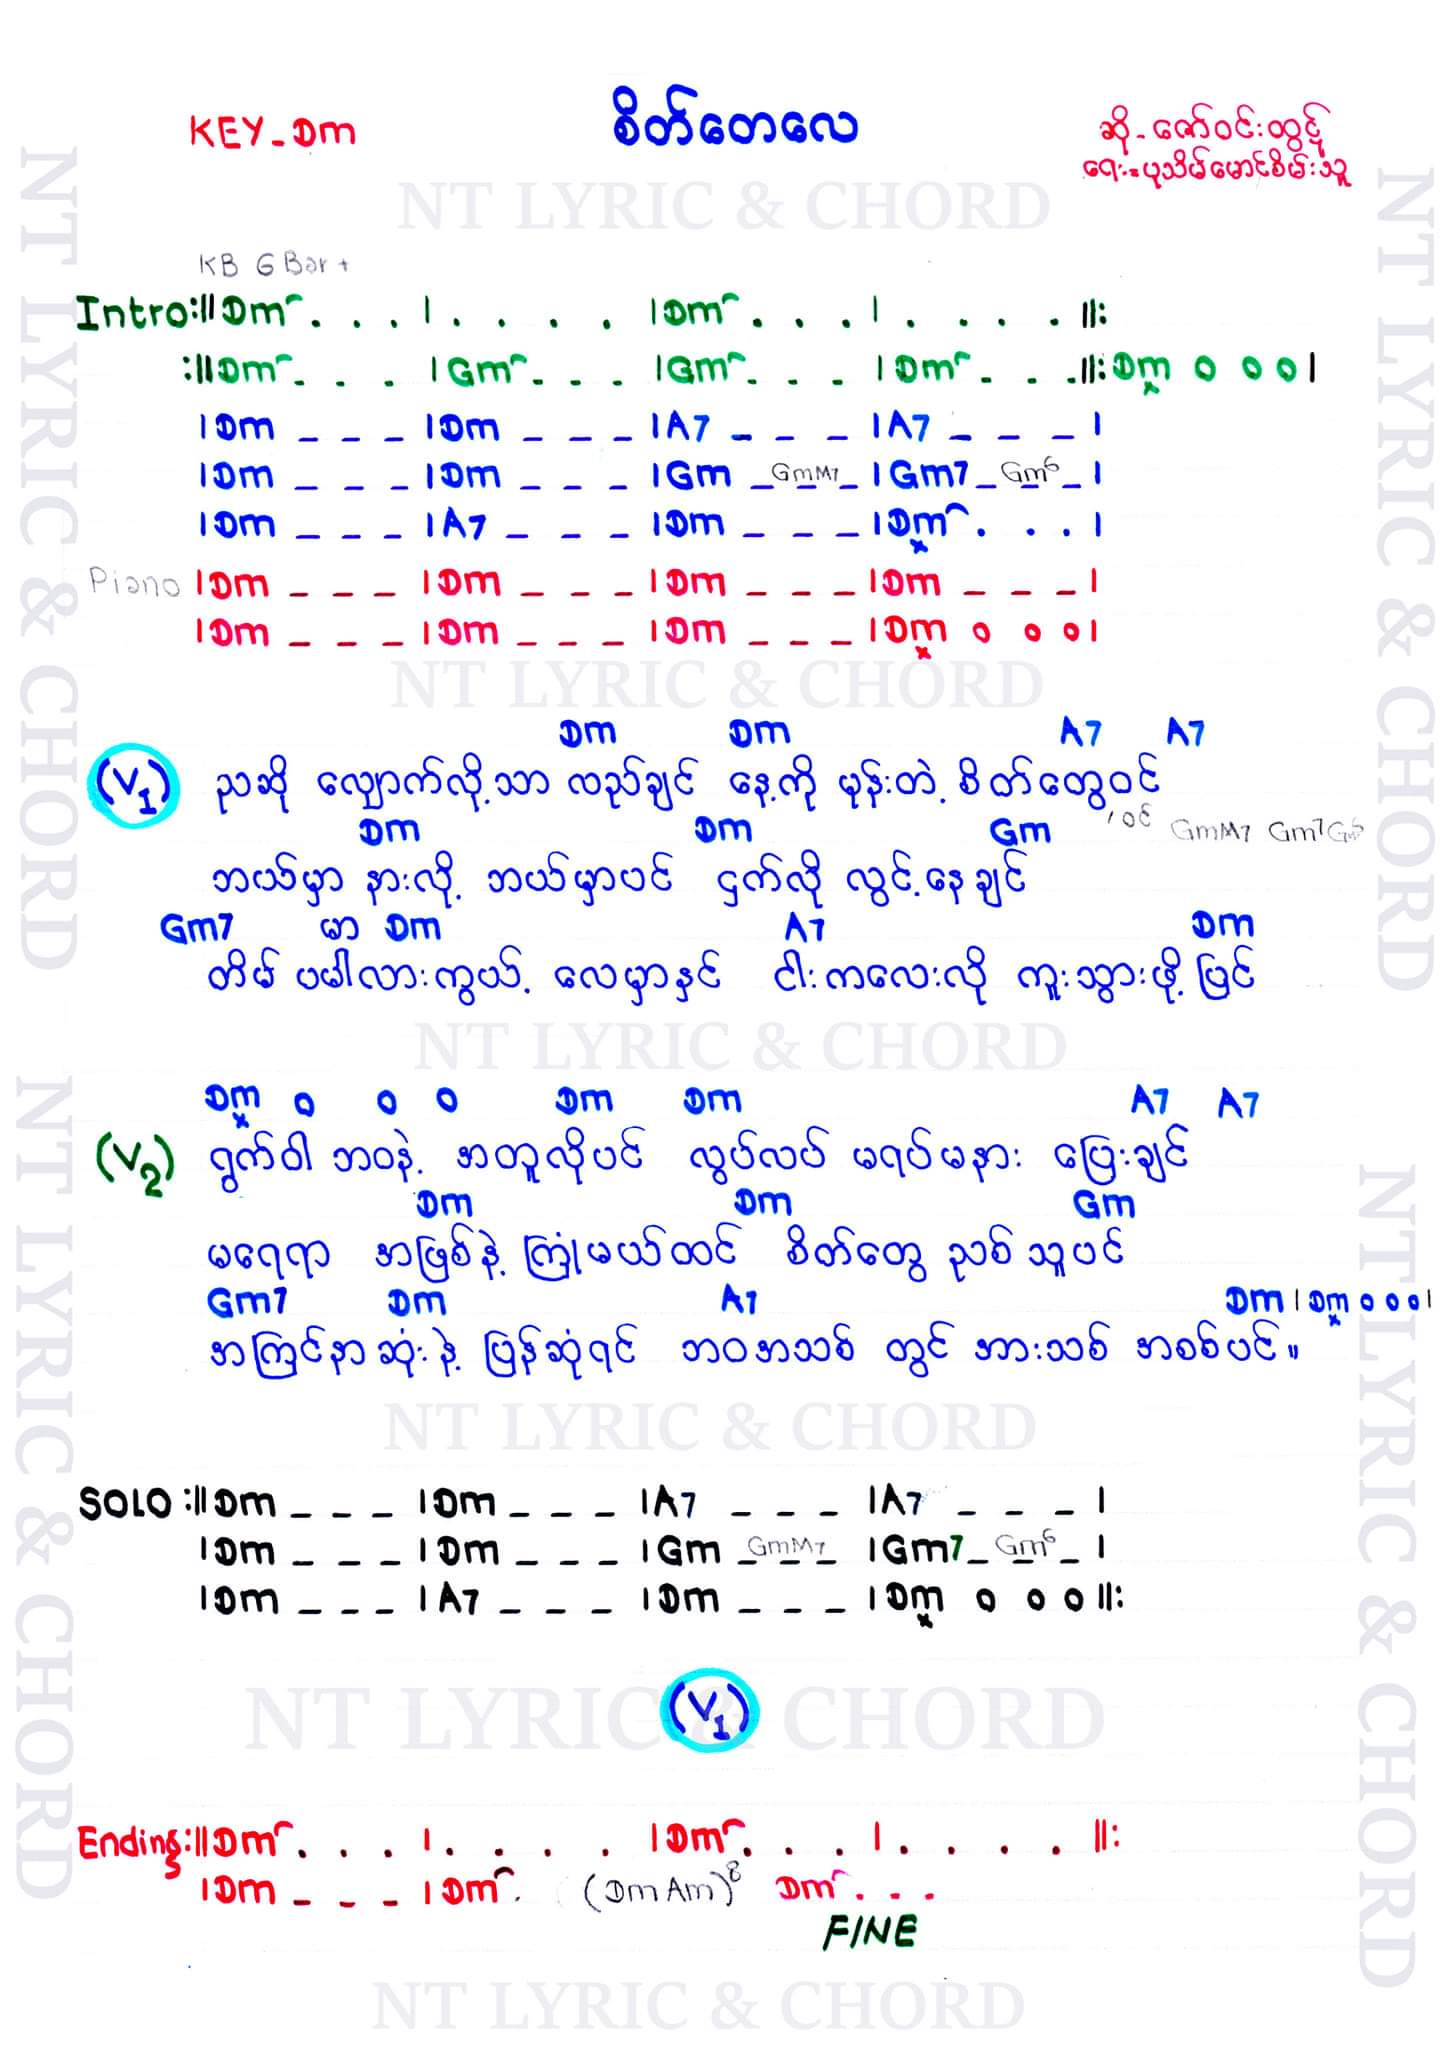 KEY_Dm
စိတ်တေလေ
ဆို-ဇော်ဝင်းထွဋ်
ရေး-ပုသိမ်မောင်စိမ်းသူ
NT LYRIC & CHORD
KB 6 Bar +
Intro:||Dm . . . | . . . . |Dm . . . | . . . . ||:
:||Dm . . . |Gm . . . |Gm . . . |Dm . . . ||: Dm o o o |
|Dm _ _ _ |Dm _ _ _ |A7 _ _ _ |A7 _ _ _ |
|Dm _ _ _ |Dm _ _ _ |Gm _ GmM7 _ |Gm7 _ Gm6 _ |
|Dm _ _ _ |A7 _ _ _ |Dm _ _ _ |Dm . . . |
Piano |Dm _ _ _ |Dm _ _ _ |Dm _ _ _ |Dm _ _ _ |
|Dm _ _ _ |Dm _ _ _ |Dm _ _ _ |Dm o o o |
NT LYRIC & CHORD
Dm Dm A7 A7
(V1) ညဆို လျှောက်လို့သာ လည်ချင် နေ့ကို မုန်းတဲ့ စိတ်တွေဝင်
Dm Dm Gm ဝင် GmM7 Gm7 Gm6
ဘယ်မှာ နားလို့ ဘယ်မှာပင် ငှက်လို လွင့်နေချင်
Gm7 မာ Dm A7 Dm
တိမ် ပမါလားကွယ့် လေမှာနှင် ငါးကလေးလို ကူးသွားဖို့ ပြင်
NT LYRIC & CHORD
Dm o o o Dm Dm A7 A7
(V2) ရွက်ဝါ ဘဝနဲ့ အတူလိုပင် လွပ်လပ် မရပ်မနား ပြေးချင်
Dm Dm Gm
မရေရာ အဖြစ်နဲ့ ကြုံမယ်ထင် စိတ်တွေ ညစ်သူပင်
Gm7 Dm A7 Dm | Dm o o o |
အကြင်နာဆုံးနဲ့ ပြန်ဆုံရင် ဘဝအသစ် တွင် အားသစ် အစစ်ပင်။
NT LYRIC & CHORD
SOLO :||Dm _ _ _ |Dm _ _ _ |A7 _ _ _ |A7 _ _ _ |
|Dm _ _ _ |Dm _ _ _ |Gm _ GmM7 _ |Gm7 _ Gm6 _ |
|Dm _ _ _ |A7 _ _ _ |Dm _ _ _ |Dm o o o ||:
(V1)
NT LYRIC & CHORD
Ending:||Dm . . . | . . . . |Dm . . . | . . . . ||:
|Dm _ _ _ |Dm . (Dm Am)8 Dm . . .
FINE
NT LYRIC & CHORD
NT LYRIC & CHORD
NT LYRIC & CHORD
NT LYRIC & CHORD
NT LYRIC & CHORD